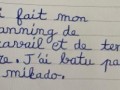 i fait mon
anning de
ravail et de te
re. J'ai batu pa
mikado.